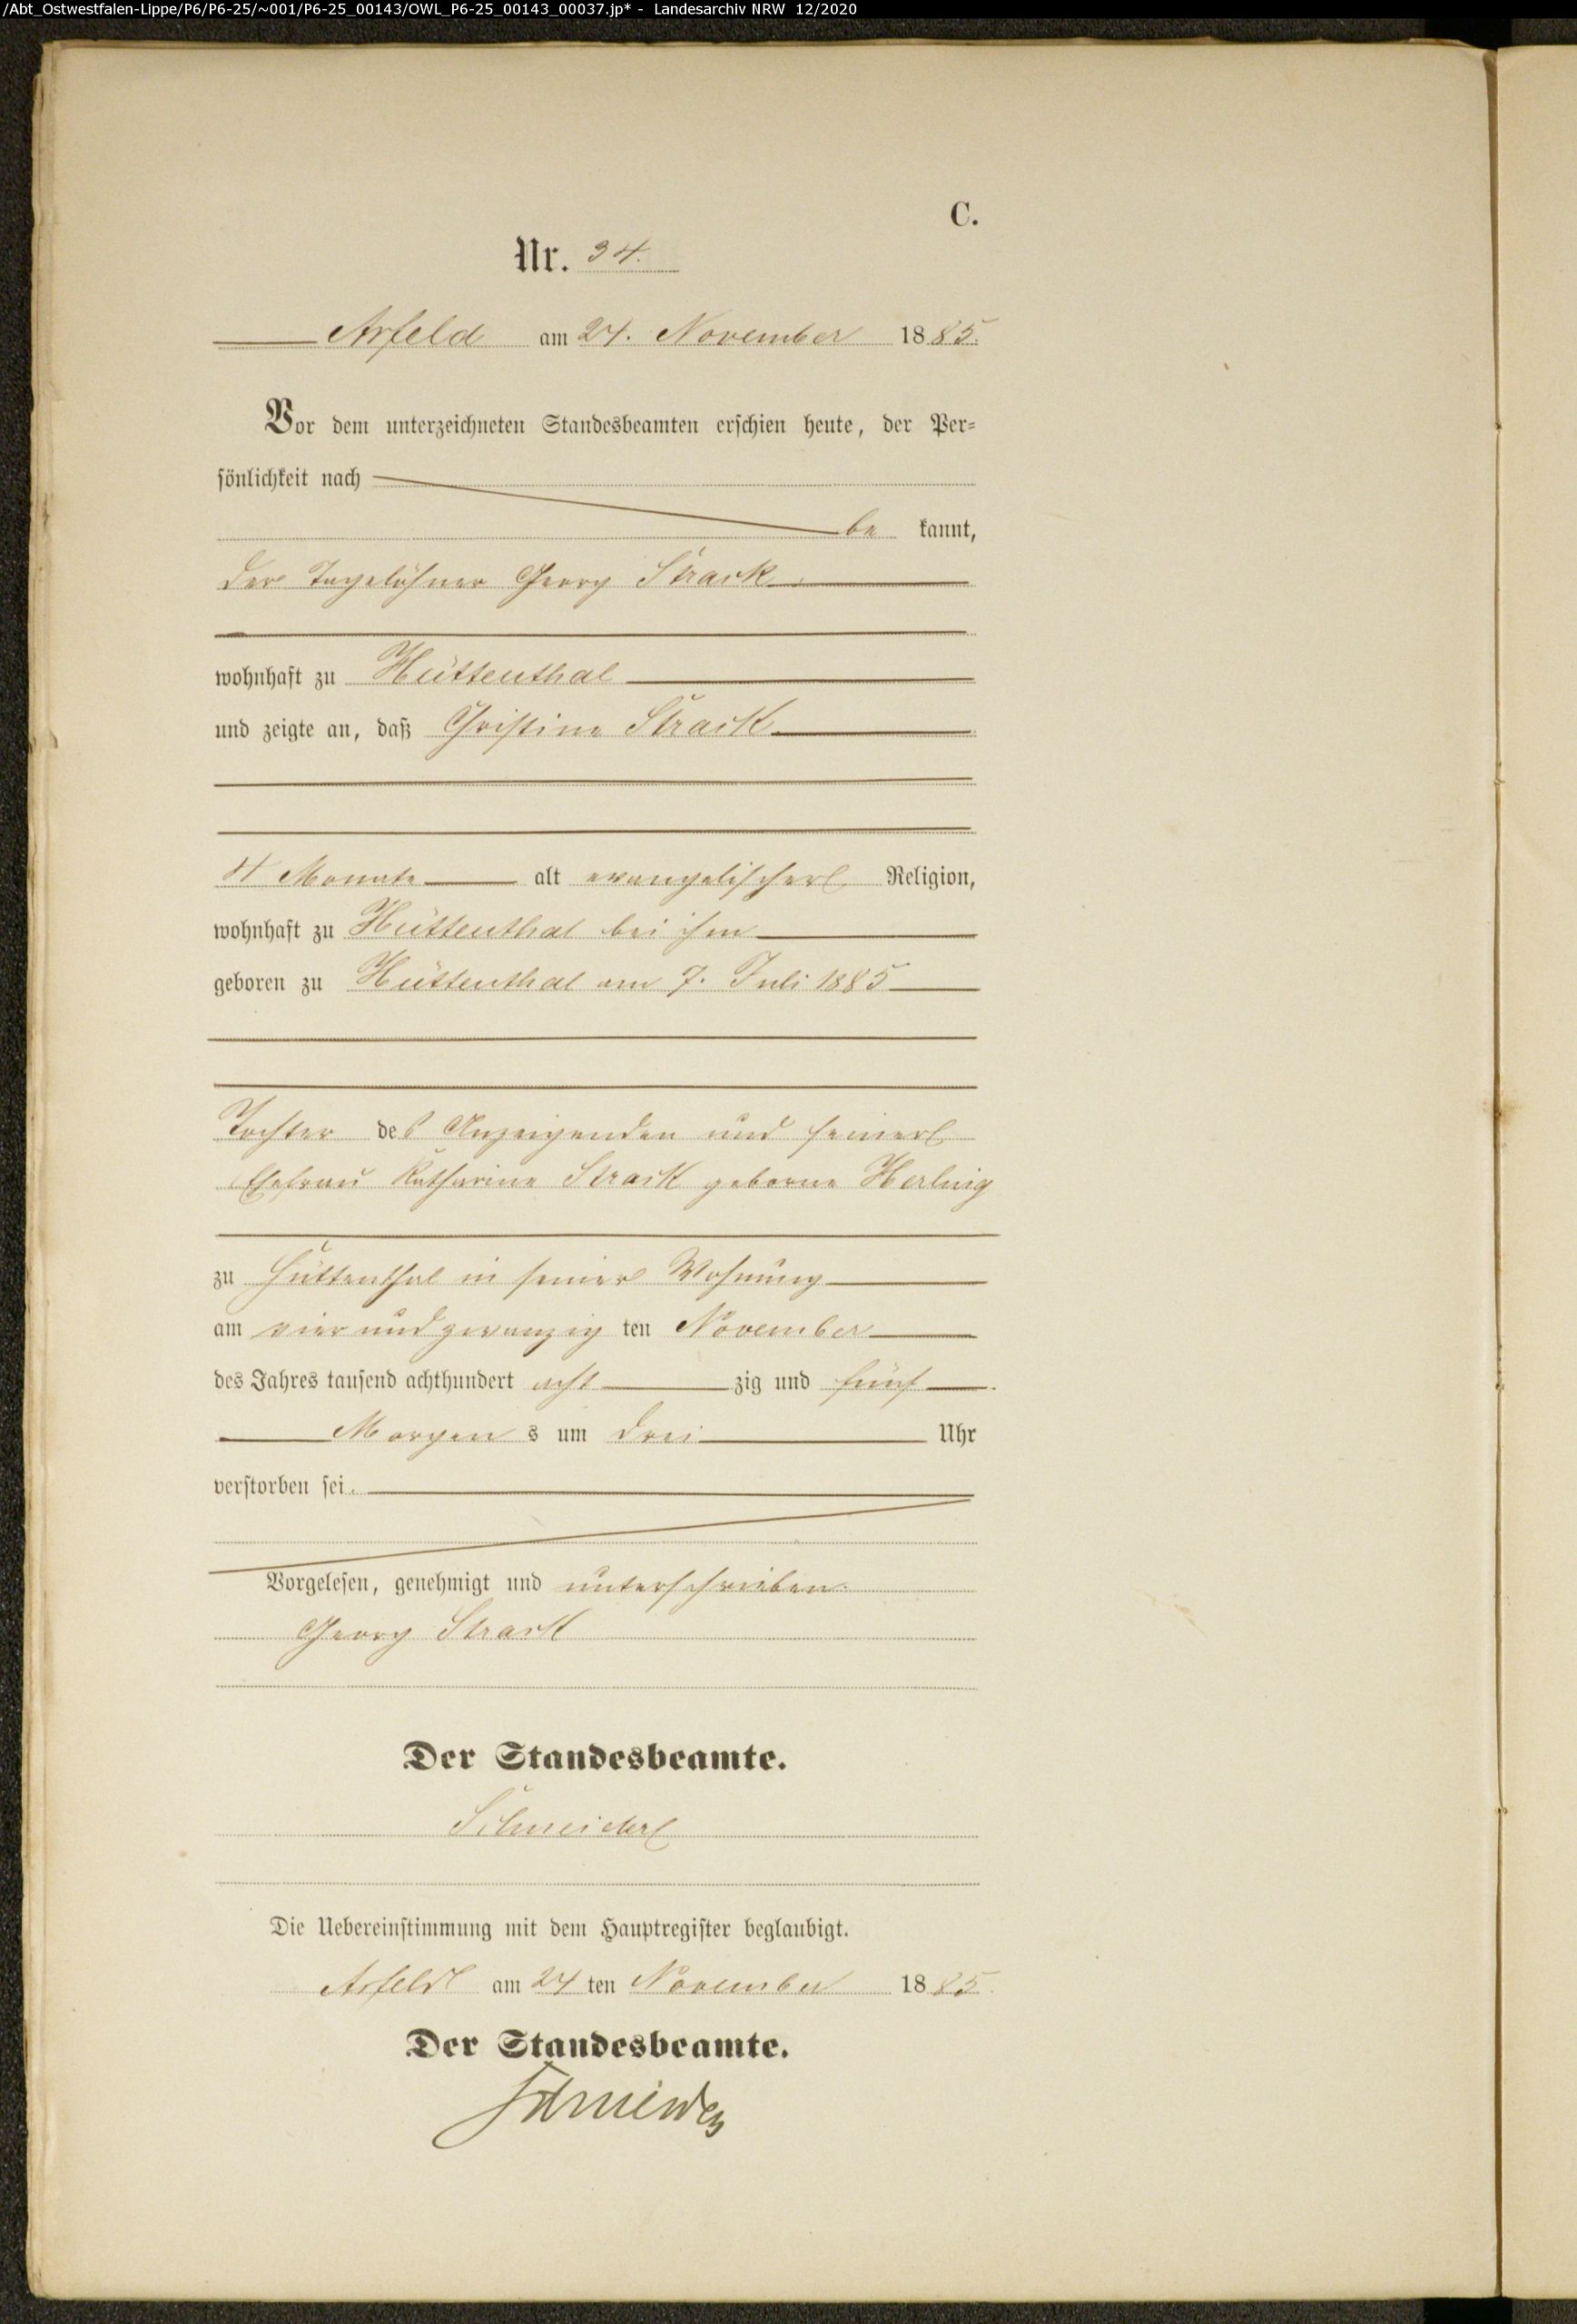 /Abt_Ostwestfalen-Lippe/P6/P6-25/~001/P6-25_00143/OWL_P6-25_00143_00037.jp* - Landesarchiv NRW 12/2020
C.
Nr. 34.
Arfeld am 24. November 1885.
Vor dem unterzeichneten Standesbeamten erschien heute, der Per=
sönlichkeit nach
be kannt,
der Tagelöhner Georg Strack
wohnhaft zu Hüttenthal
und zeigte an, daß Christine Strack
4 Monate alt evangelischer Religion,
wohnhaft zu Hüttenthal bei ihm
geboren zu Hüttenthal am 7. Juli 1885
Tochter des Anzeigenden und seiner
Ehefrau Katharine Strack geborne
zu Hüttenthal in seiner Wohnung
am vier und zwanzig ten November
des Jahres tausend achthundert acht zig und fünf
Morgen s um drei Uhr
verstorben sei.
Vorgelesen, genehmigt und unterschrieben.
Georg Strack
Der Standesbeamte.
Schneider
Die Uebereinstimmung mit dem Hauptregister beglaubigt.
Arfeld am 24 ten November 1885.
Der Standesbeamte.
Schneider